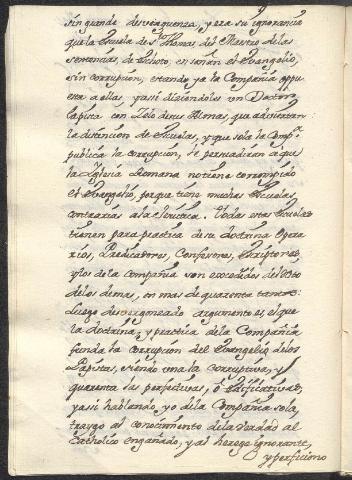 sin grande desverguenza, y era su ignorancia
que la Escuela de Sto Thomas, del Maestro de las
sentencias, de Escoto, enseñan el Evangelio,
sin corrupcion, estando ya la Compañia oppu
esta a ellas, y assi diziendoles un Doctor
Papista con zelo de sus Almas, que adviertan
la distincion de Escuelas, y que sola la Compª
publica la corrupcion, se persuadiran a que
la Iglesia Romana no tiene corrompido
el Evangelio, porque tiene muchas Escuelas
contrarias a la Jesuitica. Todas estas Escuelas
tienen para practica de su doctrina Opera
rios, Predicadores, Confesores, Escriptores,
y los de la Compañia son excedidos del
de los demas, en mas de quarenta tantos:
Luego desvergonzado argumento es, el que
la doctrina, y practica de la Compañia
funda la corrupcion del Evangelio de los
Papistas, siendo una la corruptiva, y
quarenta las perfectivas, o edificativas,
y assi hablando yo de la Compañia sola,
traygo al conocimiento de la verdad al
Catholico engañado, y al herege ignorante,
y perficiono